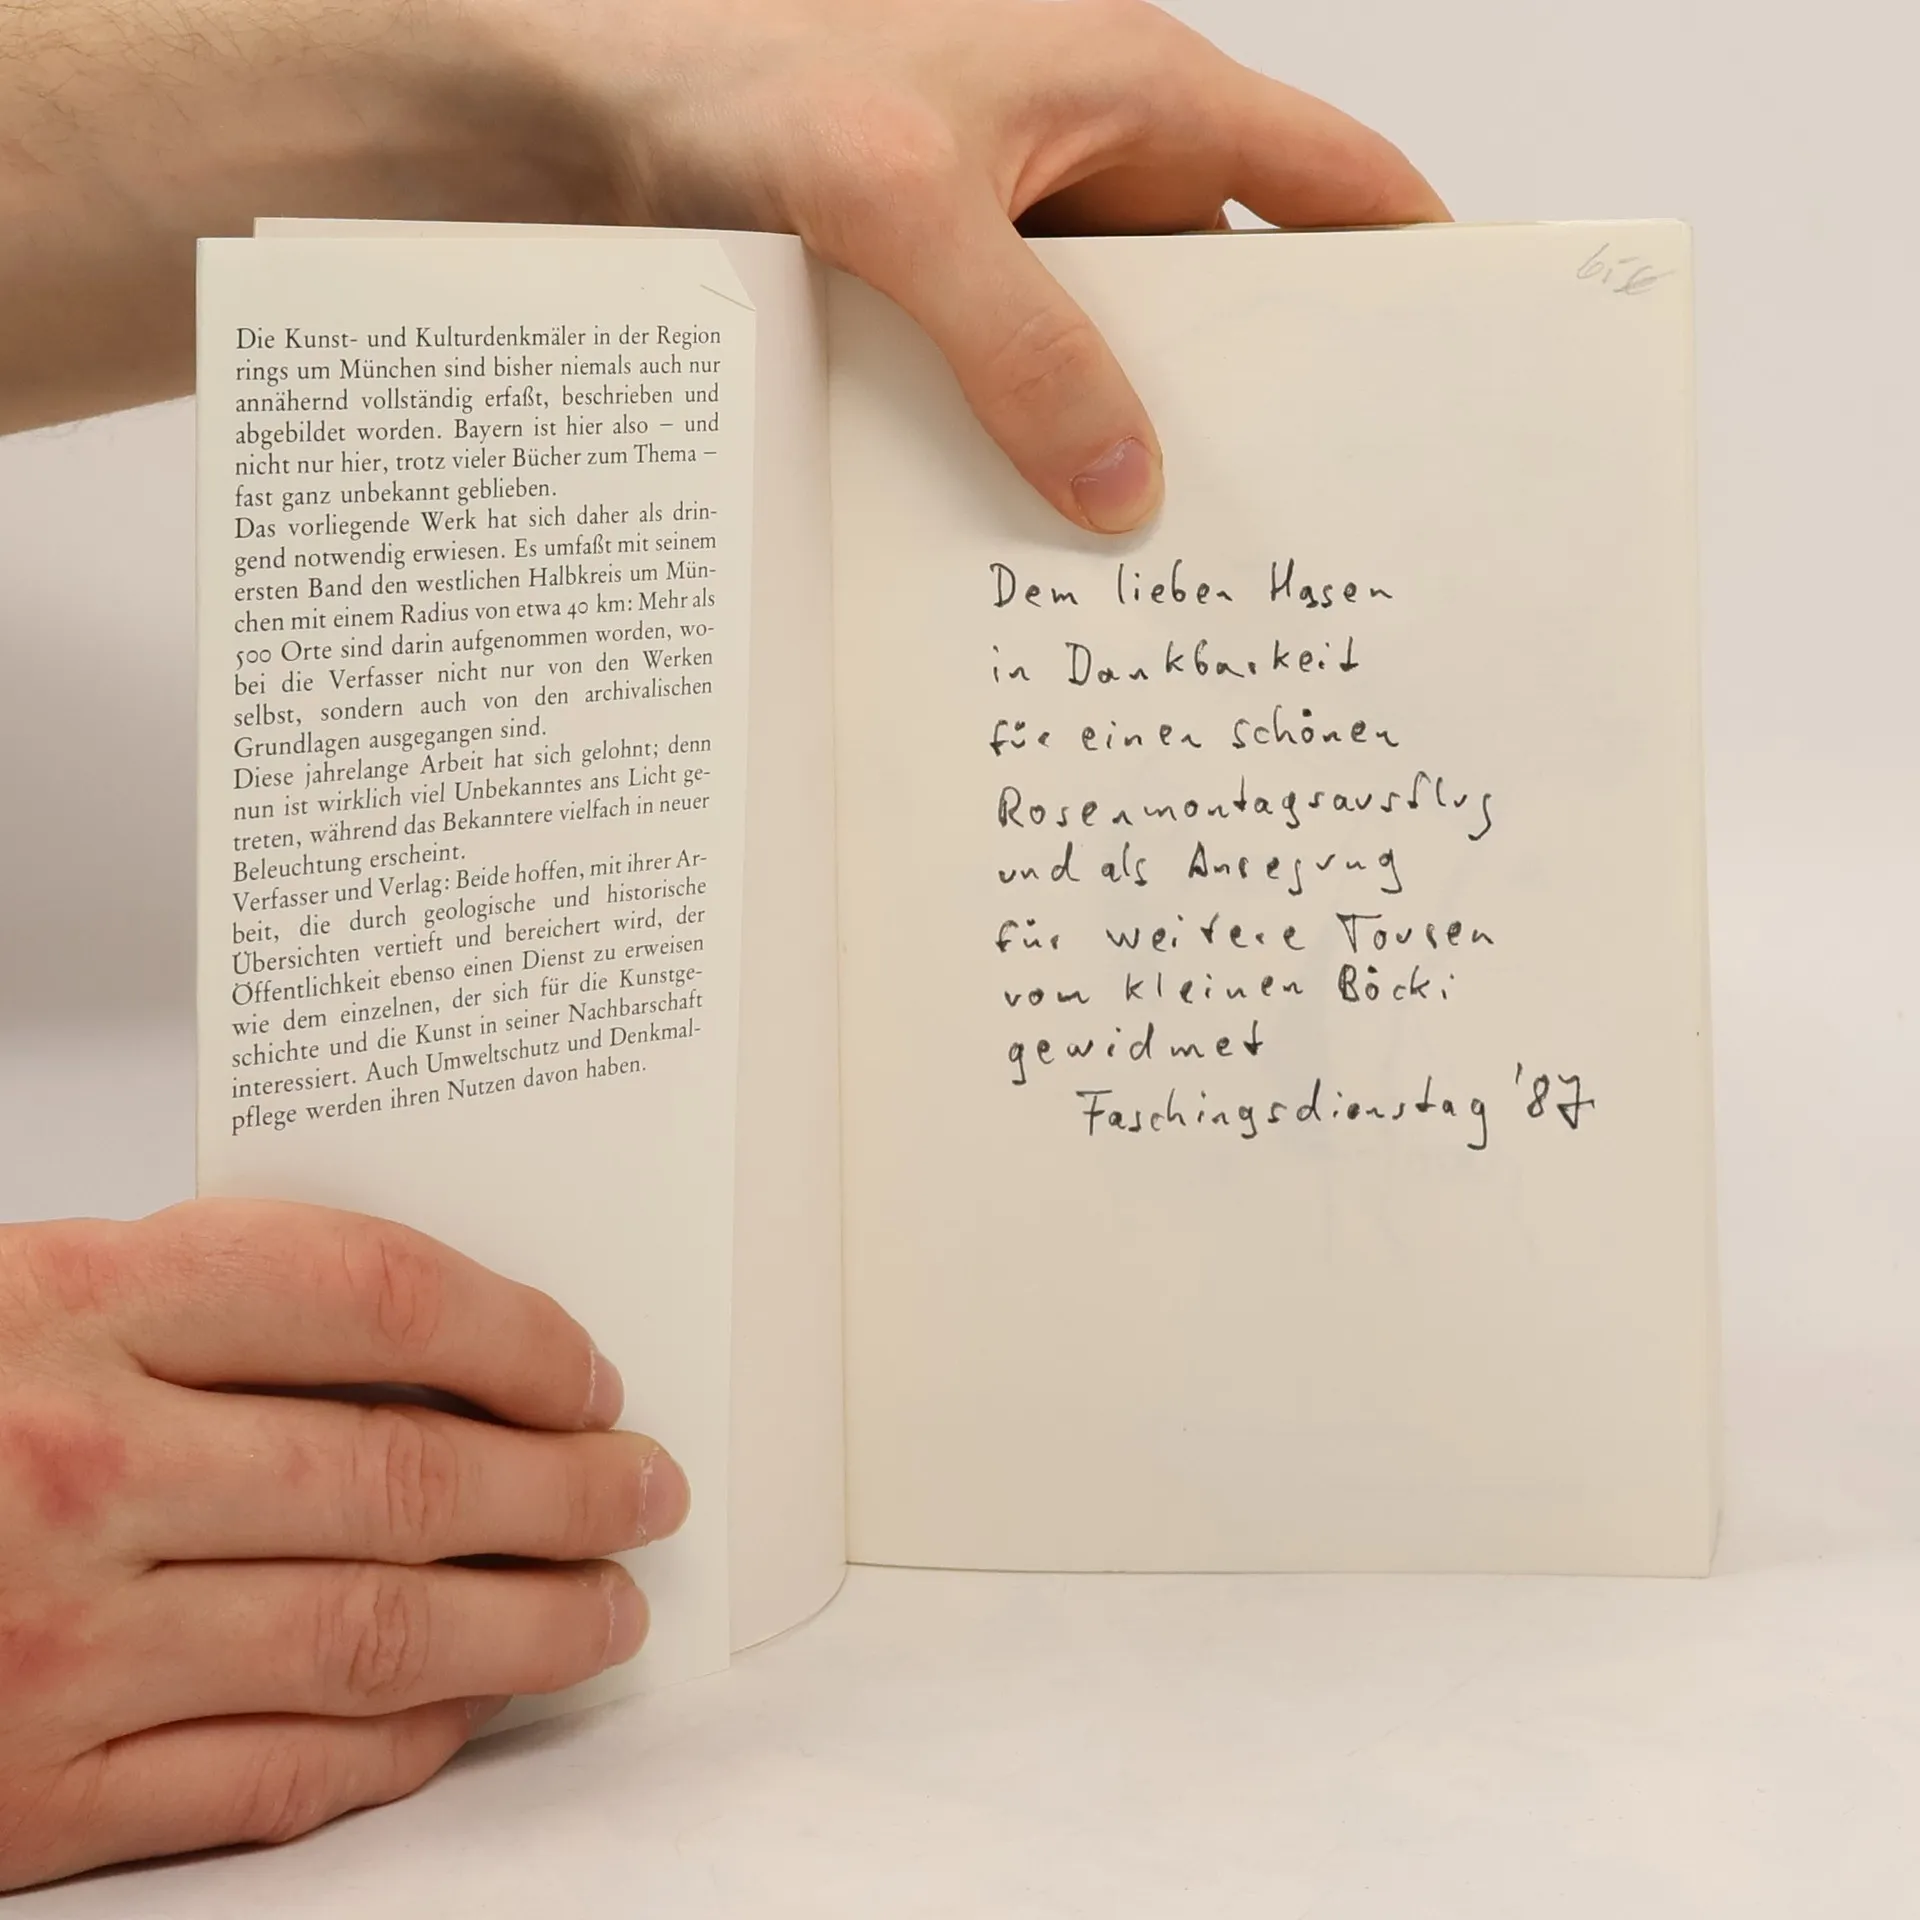 Die Kunst- und Kulturdenkmäler in der Region
rings um München sind bisher niemals auch nur
annähernd vollständig erfaßt, beschrieben und
abgebildet worden. Bayern ist hier also – und
nicht nur hier, trotz vieler Bücher zum Thema –
fast ganz unbekannt geblieben.
Das vorliegende Werk hat sich daher als drin-
gend notwendig erwiesen. Es umfaßt mit seinem
ersten Band den westlichen Halbkreis um Mün-
chen mit einem Radius von etwa 40 km: Mehr als
500 Orte sind darin aufgenommen worden, wo-
bei die Verfasser nicht nur von den Werken
selbst, sondern auch von den archivalischen
Grundlagen ausgegangen sind.
Diese jahrelange Arbeit hat sich gelohnt; denn
nun ist wirklich viel Unbekanntes ans Licht ge-
treten, während das Bekanntere vielfach in neuer
Beleuchtung erscheint.
Verfasser und Verlag: Beide hoffen, mit ihrer Ar-
beit, die durch geologische und historische
Übersichten vertieft und bereichert wird, der
Öffentlichkeit ebenso einen Dienst zu erweisen
wie dem einzelnen, der sich für die Kunstge-
schichte und die Kunst in seiner Nachbarschaft
interessiert. Auch Umweltschutz und Denkmal-
pflege werden ihren Nutzen davon haben.
6,- €
Dem lieben Hasen
in Dankbarkeit
für einen schönen
Rosenmontagsausflug
und als Anregung
für weitere Touren
vom kleinen Böcki
gewidmet
Faschingsdienstag '87